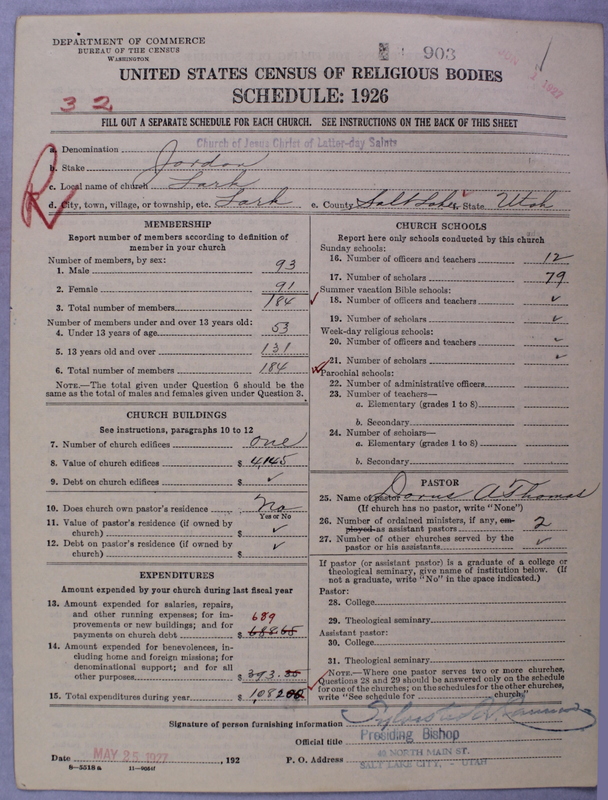 DEPARTMENT OF COMMERCE
BUREAU OF THE CENSUS
WASHINGTON
903
JUN 1 1927
UNITED STATES CENSUS OF RELIGIOUS BODIES
32
SCHEDULE: 1926
FILL OUT A SEPARATE SCHEDULE FOR EACH CHURCH. SEE INSTRUCTIONS ON THE BACK OF THIS SHEET
a. Denomination Church of Jesus Christ of Latter-day Saints
b. Stake Jordan
c. Local name of church Lark
R
d. City, town, village, or township, etc. Lark e. County Salt Lake f. State Utah
MEMBERSHIP
Report number of members according to definition of
member in your church
Number of members, by sex:
1. Male 93
2. Female 91
3. Total number of members 184
Number of members under and over 13 years old:
4. Under 13 years of age 53
5. 13 years old and over 131
6. Total number of members 184
NOTE.—The total given under Question 6 should be the
same as the total of males and females given under Question 3.
CHURCH BUILDINGS
See instructions, paragraphs 10 to 12
7. Number of church edifices one
8. Value of church edifices $ 4,145
9. Debt on church edifices $ ✓
10. Does church own pastor's residence? No
Yes or No
11. Value of pastor's residence (if owned by
church) $ ✓
12. Debt on pastor's residence (if owned by
church) $ ✓
EXPENDITURES
Amount expended by your church during last fiscal year
13. Amount expended for salaries, repairs,
and other running expenses; for im-
provements or new buildings; and for
689
payments on church debt $ 688.65
14. Amount expended for benevolences, in-
cluding home and foreign missions; for
denominational support; and for all
other purposes $ 393.35
15. Total expenditures during year $ 1,08200
CHURCH SCHOOLS
Report here only schools conducted by this church
Sunday schools:
16. Number of officers and teachers 12
17. Number of scholars 79
Summer vacation Bible schools:
18. Number of officers and teachers ✓
19. Number of scholars ✓
Week-day religious schools:
20. Number of officers and teachers ✓
21. Number of scholars ✓
Parochial schools:
22. Number of administrative officers
23. Number of teachers—
a. Elementary (grades 1 to 8)
b. Secondary
24. Number of scholars—
a. Elementary (grades 1 to 8)
b. Secondary
PASTOR
25. Name of pastor A Thomas
(If church has no pastor, write "None")
26. Number of ordained ministers, if any, em-
ployed as assistant pastors 2
27. Number of other churches served by the
pastor or his assistants ✓
If pastor (or assistant pastor) is a graduate of a college or
theological seminary, give name of institution below. (If
not a graduate, write "No" in the space indicated.)
Pastor:
28. College
29. Theological seminary
Assistant pastor:
30. College
31. Theological seminary
NOTE.—Where one pastor serves two or more churches,
Questions 28 and 29 should be answered only on the schedule
for one of the churches; on the schedules for the other churches,
write "See schedule for church"
Signature of person furnishing information
Official title Presiding Bishop
Date MAY 25 1927, 192 P. O. Address 40 NORTH MAIN ST.
SALT LAKE CITY, - UTAH
8—5518a 11—9064f